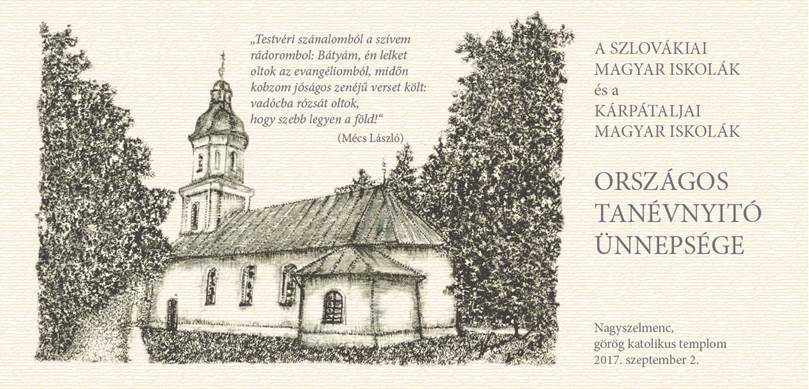 „Testvéri szánalomból a szívem
rádorombol: Bátyám, én lelket
oltok az evangéliomból, midőn
kobzom jóságos zenéjű verset költ:
vadócba rózsát oltok,
hogy szebb legyen a föld!“
(Mécs László)
A SZLOVÁKIAI
MAGYAR ISKOLÁK
és a
KÁRPÁTALJAI
MAGYAR ISKOLÁK
ORSZÁGOS
TANÉVNYITÓ
ÜNNEPSÉGE
Nagyszelmenc,
görög katolikus templom
2017. szeptember 2.